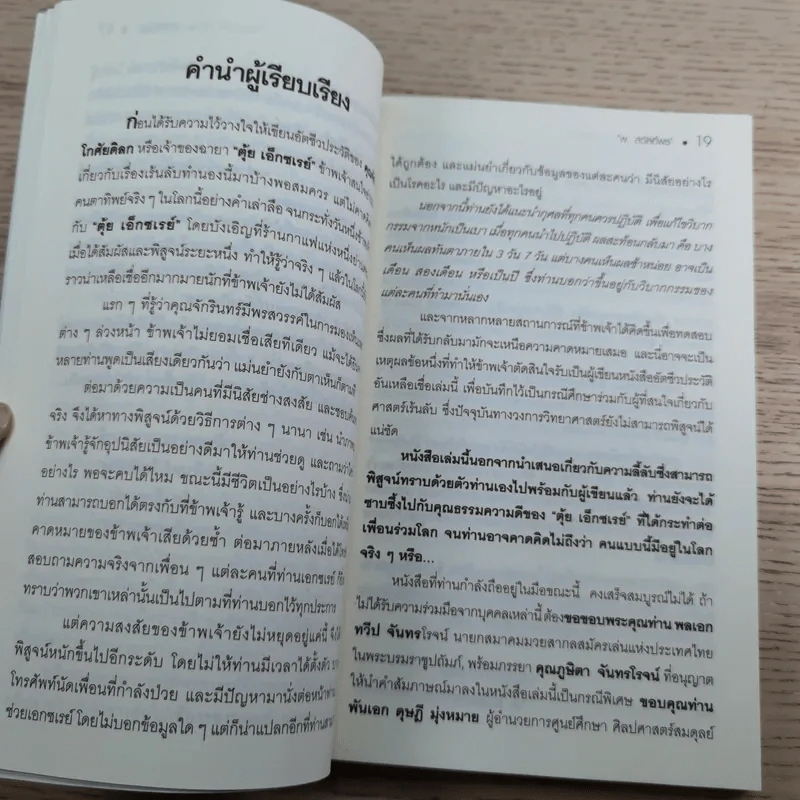 คำนำผู้เรียบเรียง
ก่อนได้รับความไว้วางใจให้เขียนอัตชีวประวัติของ
โกศัยดิลก หรือเจ้าของฉายา “ตุ้ย เอ็กซเรย์” ข้าพเจ้าสนใจ
เกี่ยวกับเรื่องเร้นลับทำนองนี้มาบ้างพอสมควร แต่ไม่
คนตาทิพย์จริง ๆ ในโลกนี้อย่างคำเล่าลือ จนกระทั่งวันหนึ่ง
กับ “ตุ้ย เอ็กซเรย์” โดยบังเอิญที่ร้านกาแฟแห่งหนึ่ง
เมื่อได้สัมผัสและพิสูจน์ระยะหนึ่ง ทำให้รู้ว่าจริง ๆ แล้วในโลก
ราวน่าเหลือเชื่ออีกมากมายนักที่ข้าพเจ้ายังไม่ได้สัมผัส
แรก ๆ ที่รู้ว่าคุณจักรินทร์มีพรสวรรค์ในการมอง
ต่าง ๆ ล่วงหน้า ข้าพเจ้าไม่ยอมเชื่อเสียทีเดียว แม้จะได้
หลายท่านพูดเป็นเสียงเดียวกันว่า แม่นยำยังกับตาเห็นก็ตาม
ต่อมาด้วยความเป็นคนที่มีนิสัยช่างสงสัย และชอบ
จริง จึงได้หาทางพิสูจน์ด้วยวิธีการต่าง ๆ นานา เช่น นำภาพ
ข้าพเจ้ารู้จักอุปนิสัยเป็นอย่างดีมาให้ท่านช่วยดู และถามว่า
อย่างไร พอจะคบได้ไหม ขณะนี้มีชีวิตเป็นอย่างไรบ้าง ซึ่ง
ท่านสามารถบอกได้ตรงกับที่ข้าพเจ้ารู้ และบางครั้งก็บอกได้
คาดหมายของข้าพเจ้าเสียด้วยซ้ำ ต่อมาภายหลังเมื่อได้
สอบถามความจริงจากเพื่อน ๆ แต่ละคนที่ท่านเอกซเรย์
ทราบว่าพวกเขาเหล่านั้นเป็นไปตามที่ท่านบอกไว้ทุกประกา
แต่ความสงสัยของข้าพเจ้ายังไม่หยุดอยู่แค่นี้
พิสูจน์หนักขึ้นไปอีกระดับ โดยไม่ให้ท่านมีเวลาได้ตั้งตัว
โทรศัพท์นัดเพื่อนที่กำลังป่วย และมีปัญหามานั่งต่อหน้า
ช่วยเอกซเรย์ โดยไม่บอกข้อมูลใด ๆ แต่ก็น่าแปลกอีกที่ท่าน
• 19
ได้ถูกต้อง และแม่นยำเกี่ยวกับข้อมูลของแต่ละคนว่า มีนิสัยอย่างไร
เป็นโรคอะไร และมีปัญหาอะไรอยู่
นอกจากนี้ท่านยังได้แนะนำกุศลที่ทุกคนควรปฏิบัติ เพื่อแก้ไขวิบาก
กรรมจากหนักเป็นเบา เมื่อทุกคนนำไปปฏิบัติ ผลสะท้อนกลับมา คือ บาง
คนเห็นผลทันตาภายใน 3 วัน 7 วัน แต่บางคนเห็นผลช้าหน่อย อาจเป็น
เดือน สองเดือน หรือเป็นปี ซึ่งท่านบอกว่าขึ้นอยู่กับวิบากกรรมของ
แต่ละคนที่ทำมานั่นเอง
และจากหลากหลายสถานการณ์ที่ข้าพเจ้าได้คิดขึ้นเพื่อทดสอบ
ซึ่งผลที่ได้รับกลับมามักจะเหนือความคาดหมายเสมอ และนี่อาจจะเป็น
เหตุผลข้อหนึ่งที่ทำให้ข้าพเจ้าตัดสินใจรับเป็นผู้เขียนหนังสืออัตชีวประวัติ
อันเหลือเชื่อเล่มนี้ เพื่อบันทึกไว้เป็นกรณีศึกษาร่วมกับผู้ที่สนใจเกี่ยวกับ
ศาสตร์เร้นลับ ซึ่งปัจจุบันทางวงการวิทยาศาสตร์ยังไม่สามารถพิสูจน์ได้
แน่ชัด
หนังสือเล่มนี้นอกจากนำเสนอเกี่ยวกับความลี้ลับซึ่งสามารถ
พิสูจน์ทราบด้วยตัวท่านเองไปพร้อมกับผู้เขียนแล้ว ท่านยังจะได้
ซาบซึ้งไปกับคุณธรรมความดีของ “ตุ้ย เอ็กซเรย์” ที่ได้กระทำต่อ
เพื่อนร่วมโลก จนท่านอาจคาดคิดไม่ถึงว่า คนแบบนี้มีอยู่ในโลก
จริง ๆ หรือ...
หนังสือที่ท่านกำลังถืออยู่ในมือขณะนี้ คงเสร็จสมบูรณ์ไม่ได้ ถ้า
ไม่ได้รับความร่วมมือจากบุคคลเหล่านี้ ต้องขอขอบพระคุณท่าน พลเอก
ทวีป จันทรโรจน์ นายกสมาคมมวยสากลสมัครเล่นแห่งประเทศไทย
ในพระบรมราชูปถัมภ์, พร้อมภรรยา คุณภูษิตา จันทรโรจน์ ที่อนุญาต
ให้นำคำสัมภาษณ์มาลงในหนังสือเล่มนี้เป็นกรณีพิเศษ ขอบคุณท่าน
พันเอก ดุษฎี มุ่งหมาย ผู้อำนวยการศูนย์ศึกษา ศิลปศาสตร์สมดุลย์